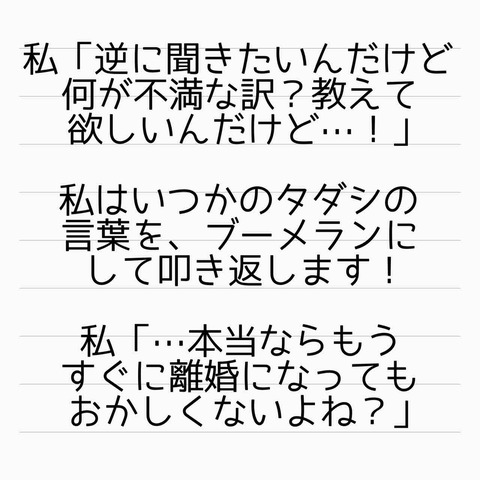 私「逆に聞きたいんだけど
何が不満な訳？教えて
欲しいんだけど…！」
私はいつかのタダシの
言葉を、ブーメランに
して叩き返します！
私「…本当ならもう
すぐに離婚になっても
おかしくないよね？」